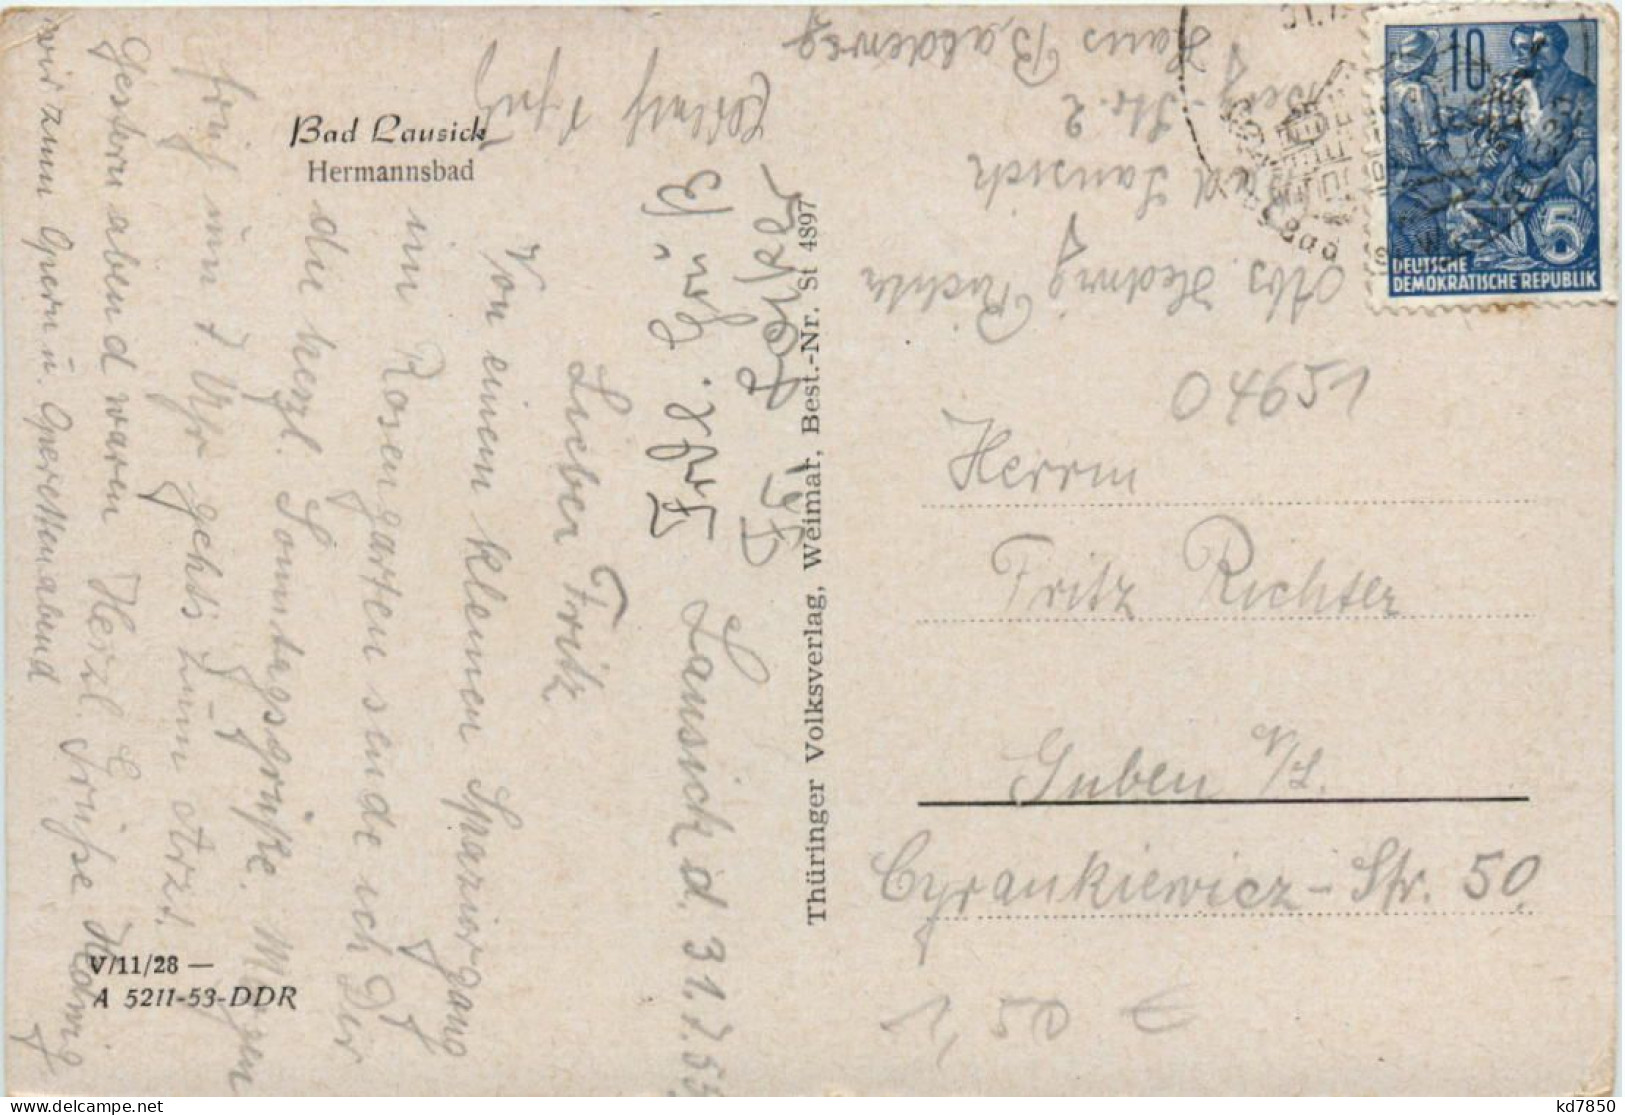 Bad Lausick
Hermannsbad
Lausick d. 31.7.55
Lieber Fritz
Von einem kleinen Spaziergang
im Rosengarten sende ich Dir
die herzl. Sonntagsgrüße. Morgen
früh um 7. Uhr geht's zum Arzt.
Gestern abend waren
wir zum Opern u. Operettenabend
Herzl. Grüße Hedwig
V/11/28 —
A 5211-53-DDR
Thüringer Volksverlag, Weimar, Best.-Nr. St 4897
Abs. Hedwig Richter
Bad Lausick
Str. 2
Haus
10
5
DEUTSCHE
DEMOKRATISCHE REPUBLIK
04651
Herrn
Fritz Richter
Guben N/L.
Cyrankiewicz-Str. 50.
1 50 €
kd7850